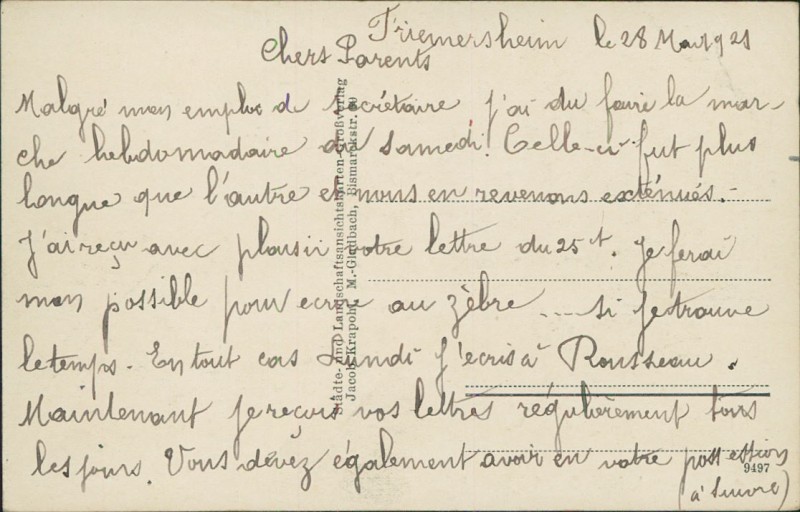 Friemersheim le 28 Mai 1921
Chers Parents
Malgré mon emploi de secrétaire j'ai du faire la mar-
che hebdomadaire du samedi. Celle-ci fut plus
longue que l'autre et nous en revenons exténués.-
J'ai reçu avec plaisir votre lettre du 25 ct. Je ferai
mon possible pour ecrire au zèbre .... si je trouve
le temps. En tout cas Lundi j'ecris à Rousseau.
Maintenant je reçois vos lettres régulièrement tous
les jours. Vous devez également avoir en votre possession
(à suivre)
Städte- und Landschaftsansichtskarten-Großverlag
Jacob Krapohl, M.-Gladbach, Bismarckstr.
9497